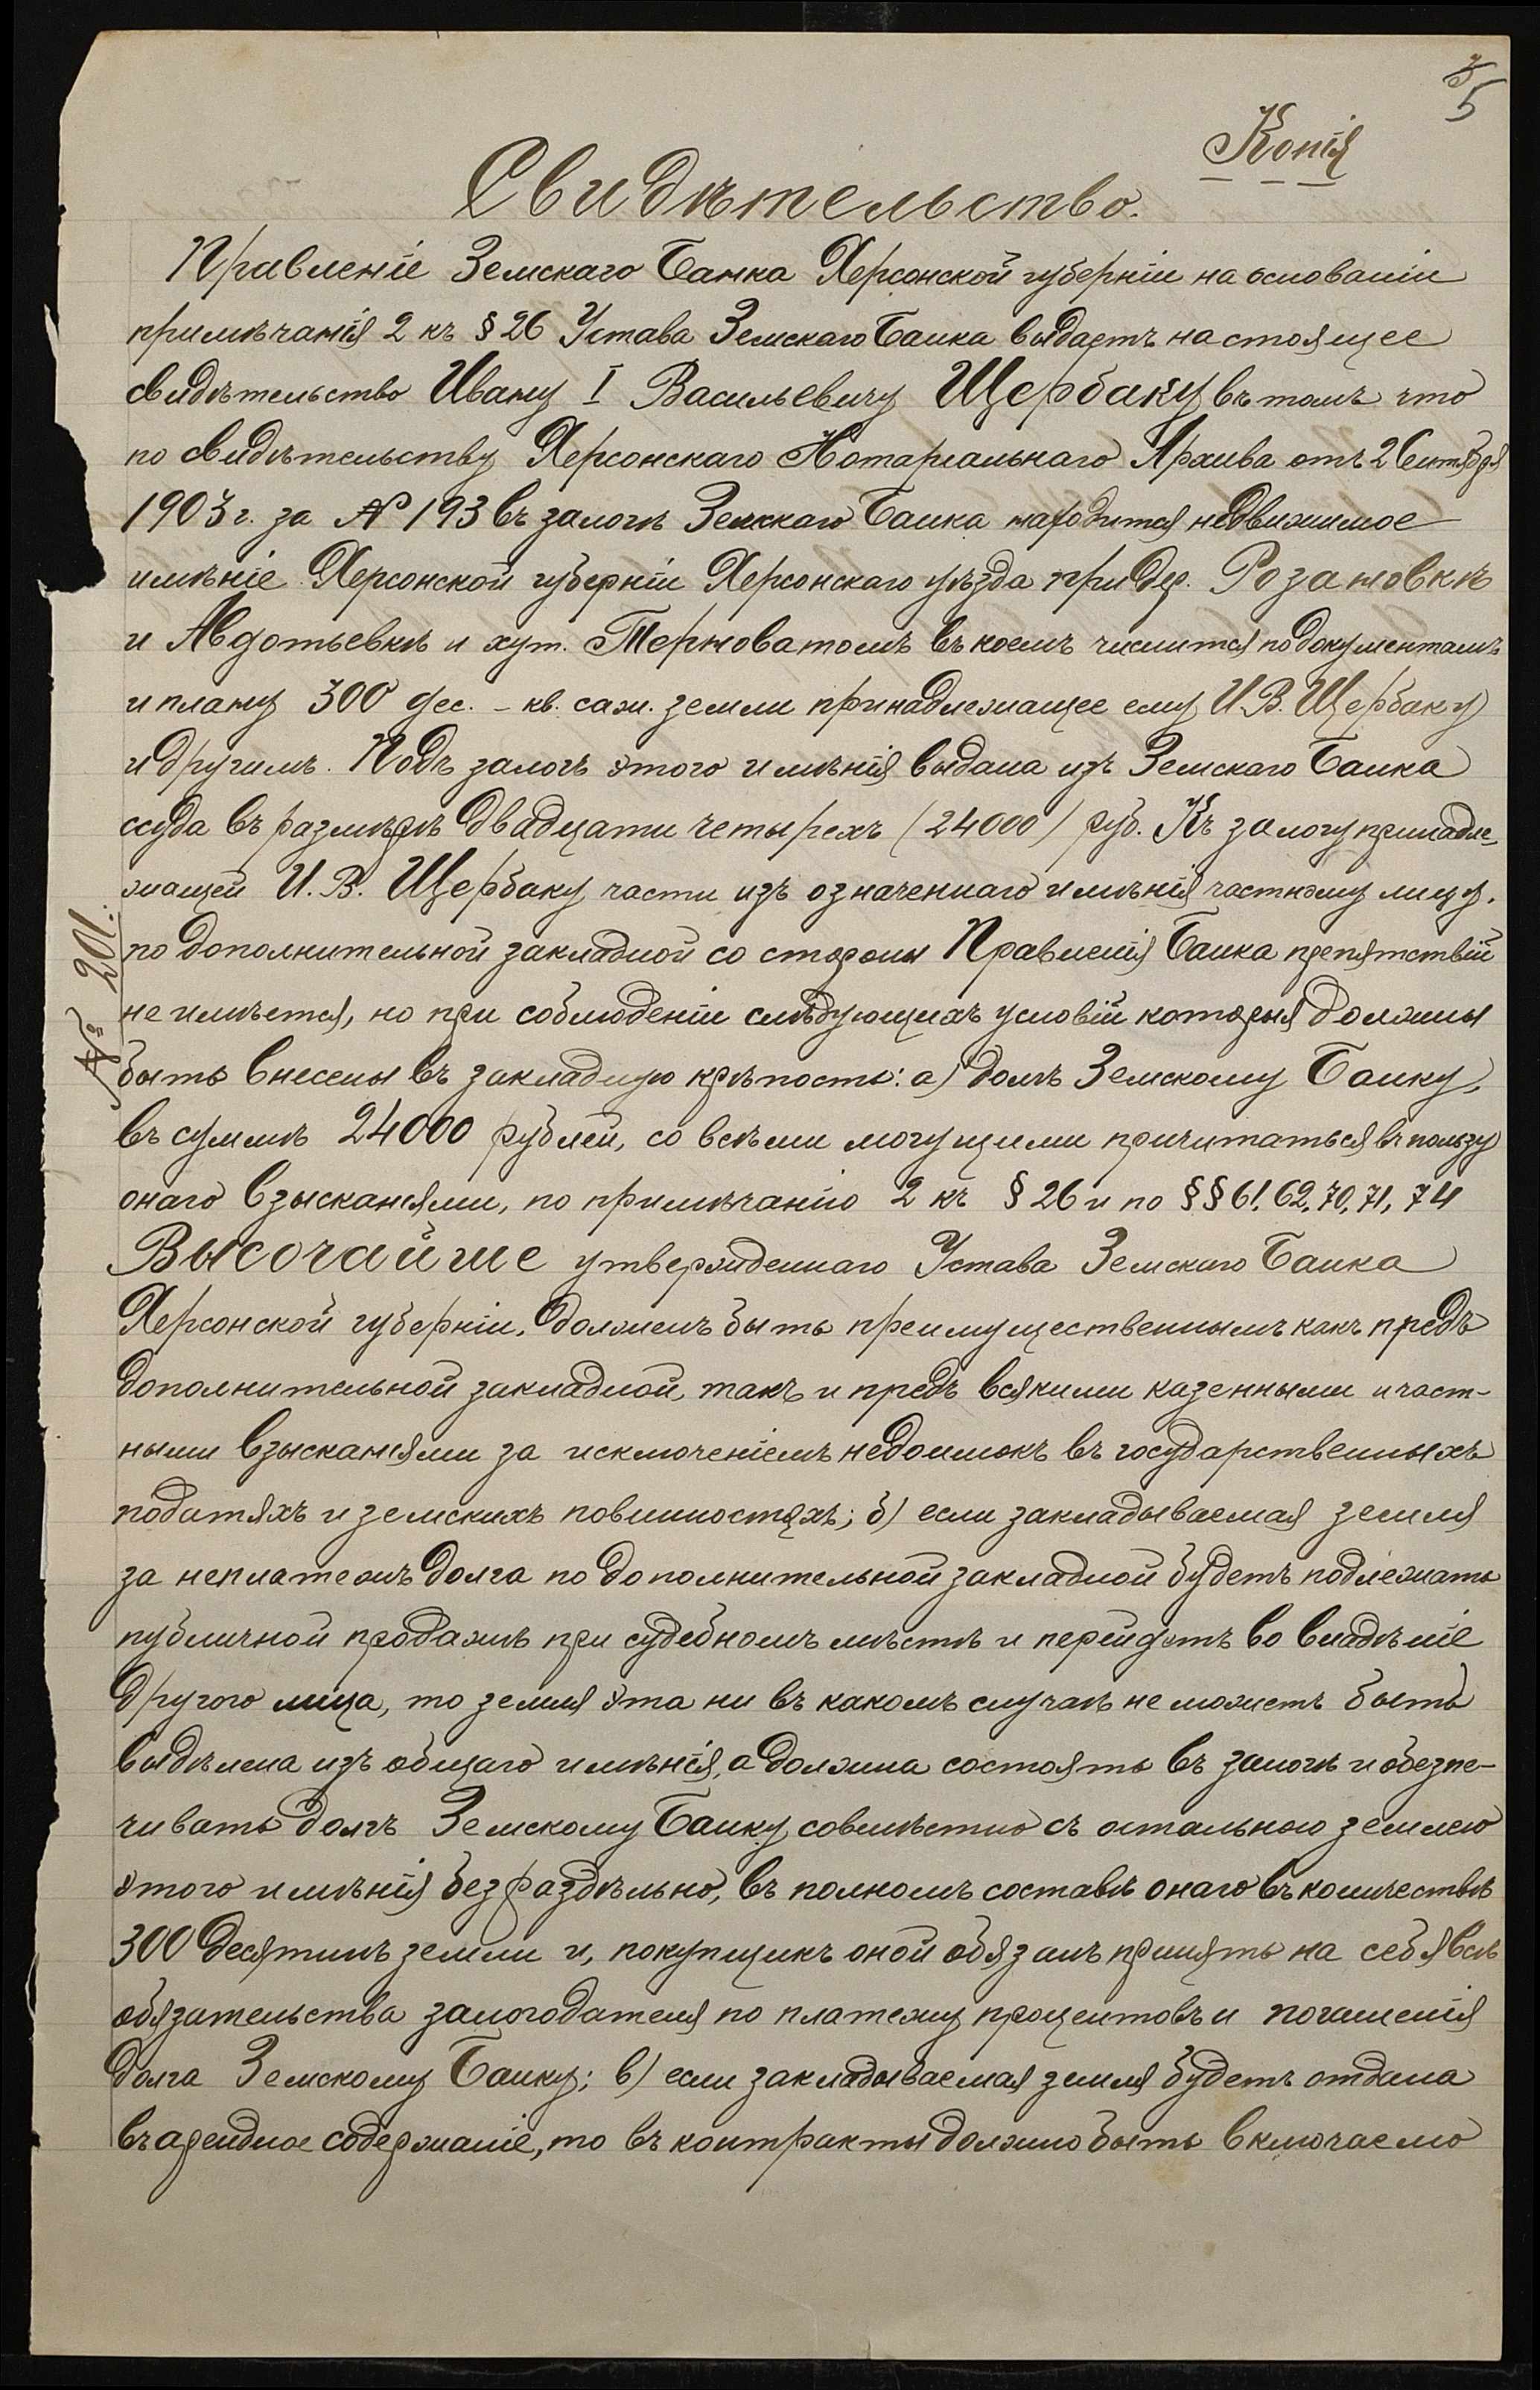 5
Копія
Свидѣтельство.
Правленіе Земскаго Банка Херсонской губерніи на основаніи
примѣчанія 2 къ § 26 Устава Земскаго Банка выдаетъ настоящее
свидѣтельство Ивану I Васильевичу Щербаку въ томъ что
по свидѣтельству Херсонскаго Нотаріальнаго Архива отъ 2 Сентября
1903 г. за № 193 въ залогѣ Земскаго Банка находится недвижимое
имѣніе Херсонской губерніи Херсонскаго уѣзда при дер. Розановкѣ
и Авдотьевкѣ и хут. Терноватомъ въ коемъ числится по документамъ
и плану 300 дес. – кв. саж. земли принадлежащее ему И. В. Щербаку
и другимъ. Подъ залогъ этого имѣнія выдана изъ Земскаго Банка
ссуда въ размѣрѣ двадцати четырехъ (24000) руб. Къ залогу принадле-
жащей И. В. Щербаку части изъ означеннаго имѣнія частному лицу,
по дополнительной закладной со стороны Правленія Банка препятствій
не имѣется, но при соблюденіи слѣдующихъ условій которыя должны
быть внесены въ закладную крѣпость: а) долгъ Земскому Банку,
въ суммѣ 24000 рублей, со всѣми могущими причитаться въ пользу
онаго взысканіями, по примѣчанію 2 къ § 26 и по §§ 61, 62, 70, 71, 74
Высочайше утвержденнаго Устава Земскаго Банка
Херсонской губерніи, долженъ быть преимущественнымъ какъ предъ
дополнительной закладной, такъ и предъ всякими казенными и част-
ными взысканіями за исключеніемъ недоимокъ въ государственныхъ
податяхъ и земскихъ повинностяхъ; б) если закладываемая земля
за неплатежъ долга по дополнительной закладной будетъ подлежать
публичной продажѣ при судебномъ мѣстѣ и перейдетъ во владѣніе
другого лица, то земля эта ни въ какомъ случаѣ не можетъ быть
выдѣлена изъ общаго имѣнія, а должна состоять въ залогѣ и обезпе-
чивать долгъ Земскому Банку совмѣстно съ остальною землею
этого имѣнія безраздѣльно, въ полномъ составѣ онаго въ количествѣ
300 десятинъ земли и, покупщикъ оной обязанъ принять на себя всѣ
обязательства залогодателя по платежу процентовъ и погашенія
долга Земскому Банку; в) если закладываемая земля будетъ отдана
въ арендное содержаніе, то въ контракты должно быть включаемо
№ 201.